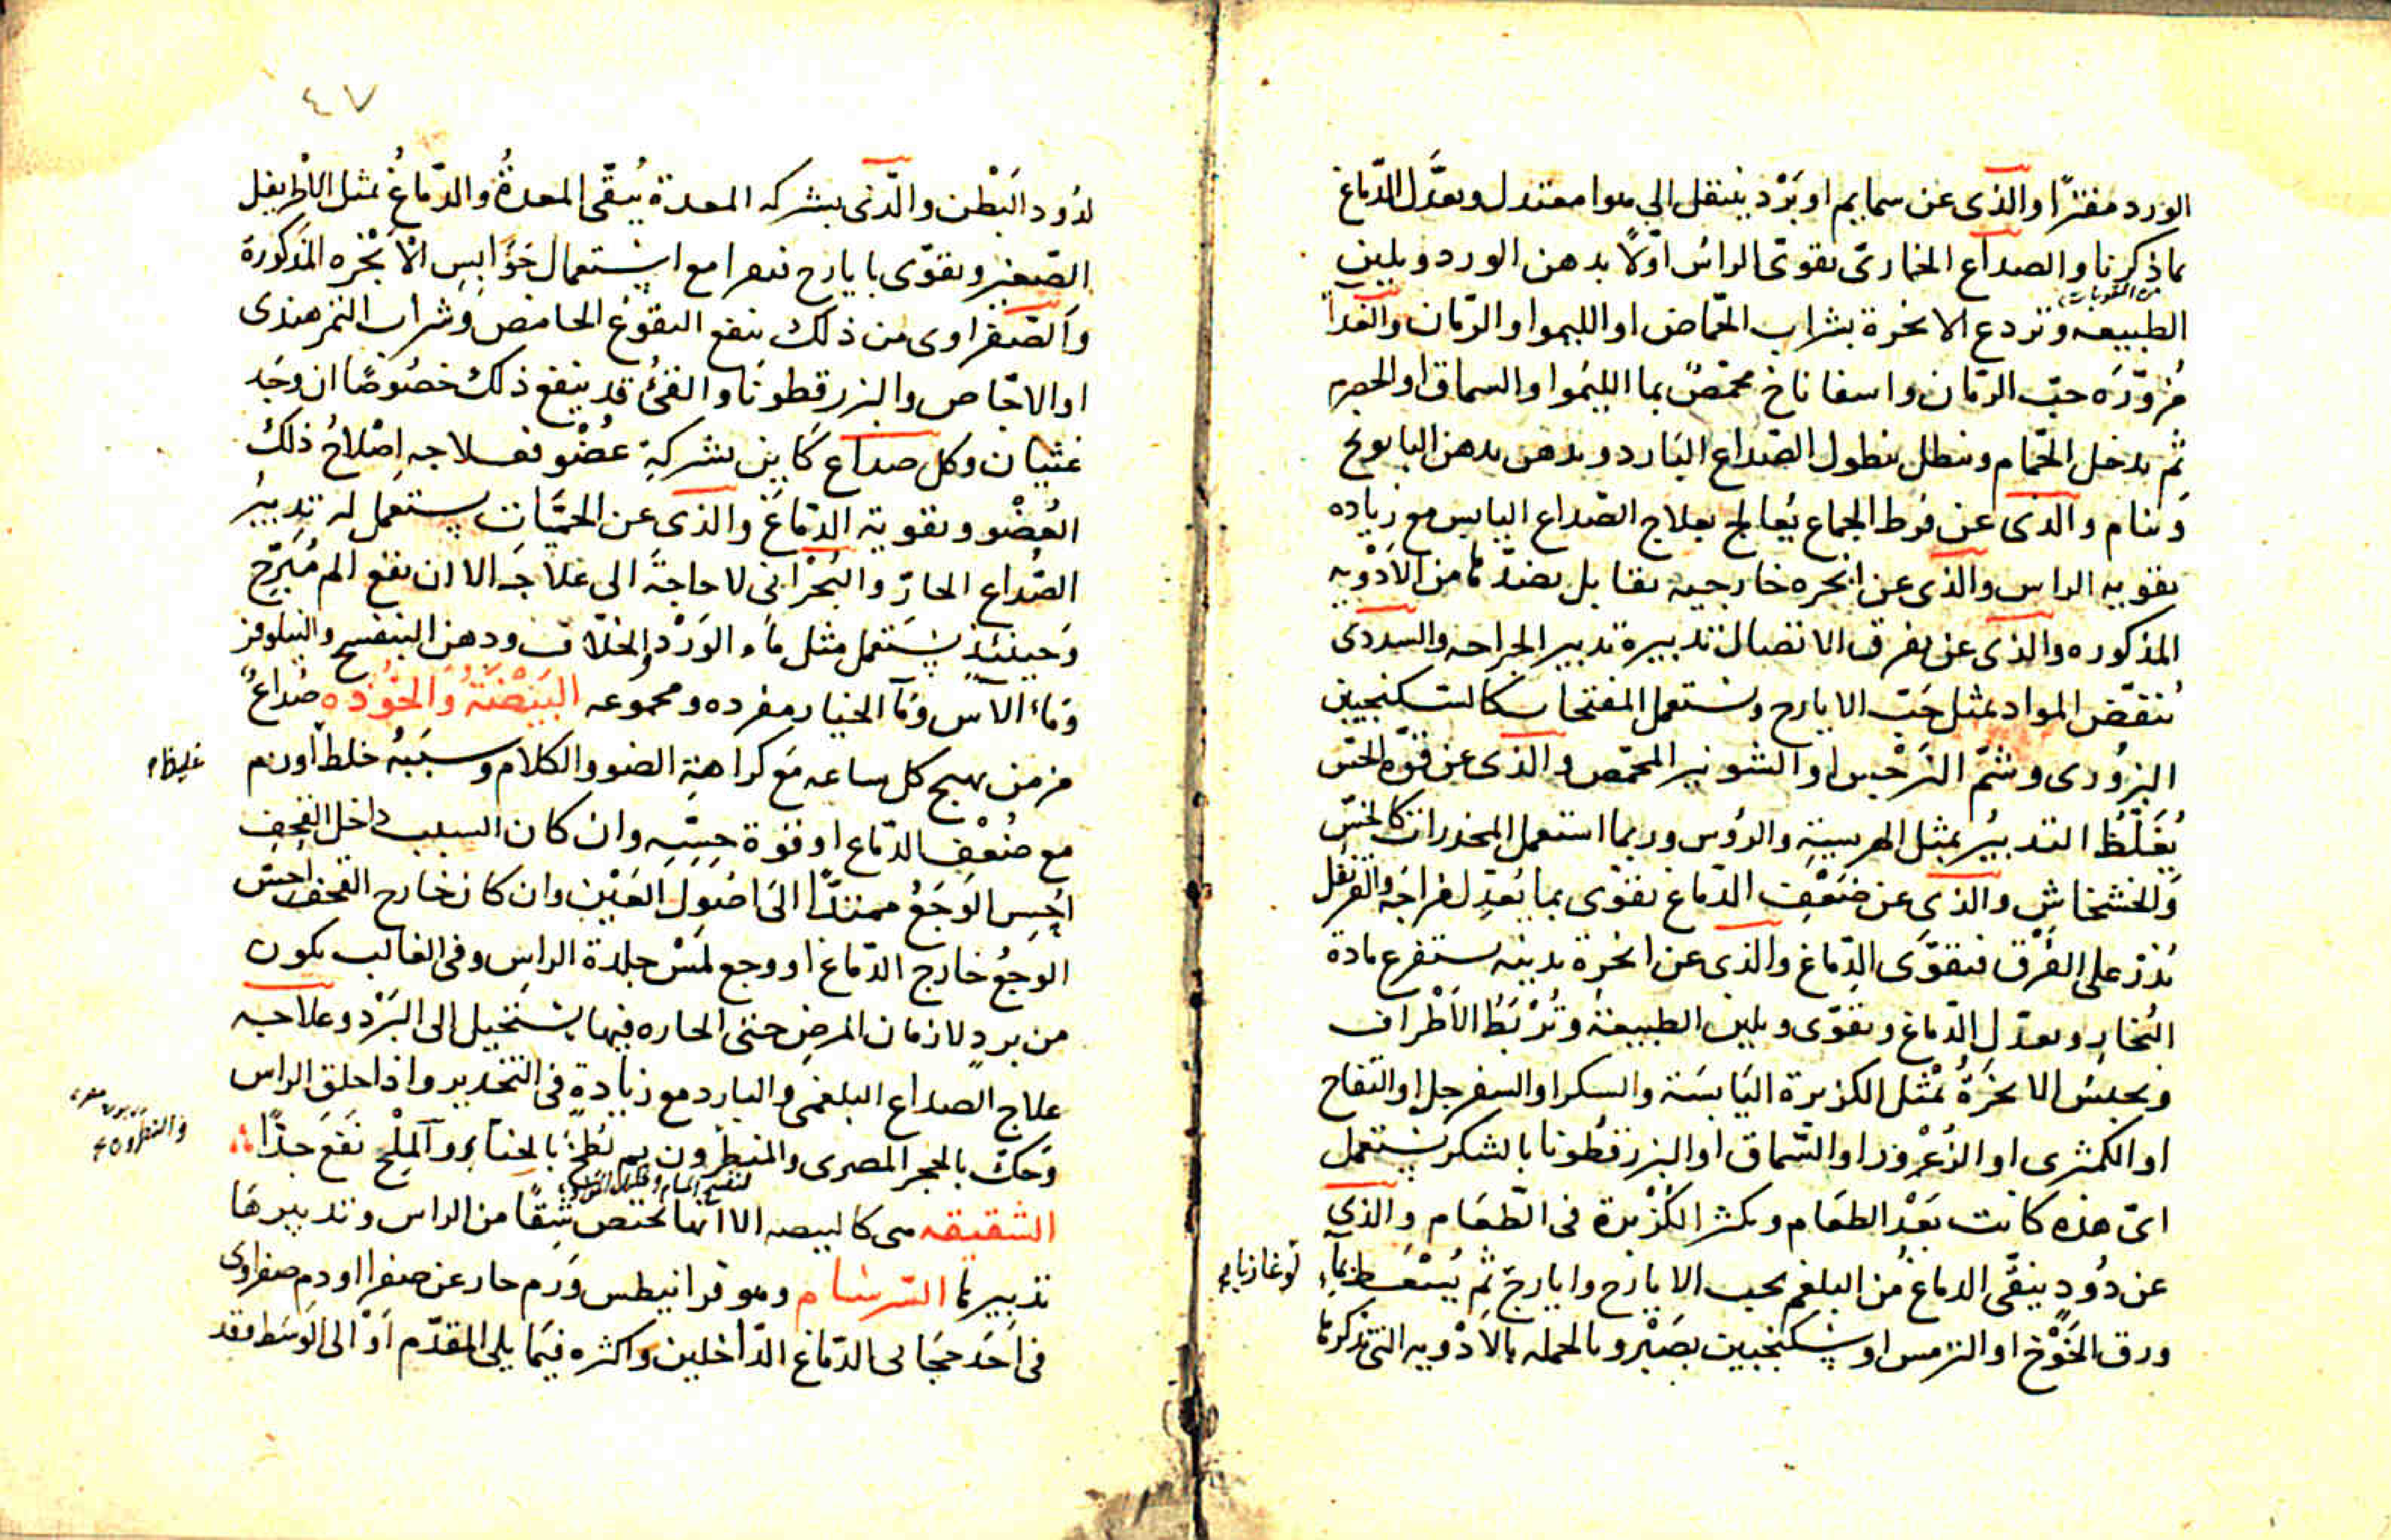 الورد مفترًا والذى عن سمايم او بَرْد ينتقل الي هوا معتدل ويعدَّل الدّماغ
بما ذكرنا والصداع الخمارىّ يقوىّ الراس اوّلاً بدهن الورد ويلين
من المقويات
الطبيعه وتردع الابخرة بشراب الحمّاض او الليموا والرمّان والغدآ
مُزوّرَه حبّ الرمّان واسفاناخ محمّصٌ بما الليموا والسماق او الحصرم
ثم يدخل الحمّام وينطل بنطول الصّداع البَارد ويدهن بدهن البابونج
وَينام والذى عن فرط الجماع يُعالج بعلاج الصّداع اليابس مع زياده
تقويه الراس والذى عن ابخره خارجيه تقابل بضدّها من الاَدْويه
المذكوره والذى عن تفرق الاتصال تدبيرة تدبير الجراحه والسددى
تُنقّض المواد بمثل حَبّ الايارج ويستعمل المفتحات كالسكنجبين
البزُورى وشمّ النَرْجس او الشونيز المحمّص والذى عن قوّه الحسّ
يُغَلّظُ التدبيرُ بمثل الهريسةِ والروُس وربما استعمل المخدرات كالخسّ
وَالخشخاشِ والذى عن ضَعْفِ الدّماغ يقوّى بما يُعدِّل مزاجَه والقرنفل
يُذرّ على الفَرْق فيقوّى الدِّماغ والذى عن ابخرة بدنيه يستفرغ مادة
البُخارِ ويعدّل الدّماغ ويقوّى ويلين الطبيعةُ وتُرْبَطُ الأَطْراف
ويحبسُ الابخرَةُ بمْثل الكزبرة اليَابسَة والسكر او السفرجل او التفاح
او الكمثرى او الزُعْرْور او السّماق او البزرقطونا بالسُكر يستعمل
اىّ هذه كانت بَعْد الطعَام ويكثر الكُزْبرة فى الطّعَام والذىِ
عن دُودٍ ينقّى الدماغُ مُن البلغم بحب الايارج وايارجَ ثم يُسْعَط بمآءِ
لوغاذيا
ورق الخَوْخ او الترمس او سكنجبين بصَبْر وبالجمله بالادْويه التى نذكرها
٤٧
لدُود البَطْن والّذى بشركه المعدة يُنقّى المعدةُ والدّماغُ بمثل الاطريفل
الصّغير ويقوّى بايارج فيقرا مع استعمال حَوَابسِ الاَبْخره المَذكورة
وَالصّفراوى من ذلك ينفع النقوع الحامض وشراب التمر هندى
او الاجّاص والبزرقطونَا والقئُ قد ينفع ذلك خصُوصًا ان وجَد
غثيان وكل صداع كَاينِ بشركةِ عُضْو فعلاجه اِصْلاحُ ذلكَ
العُضْو وتقوية الدّمَاغَ والذى عن الحميَّات يستعمل له تدبيرُ
الصُّداع الحارّ والبُحْرانى لا حاجةَ الى علاجَه الا ان يقع الم مُبَرِّح
وَحينئذٍ يستعمل مثل مآء الوَرْد والخلاف ودهن البنفسج والنيلوفر
وَماء الآس وَمآ الخيار مفرده ومجموعه البَيْضَةُ وَالخُوُذه صُداعٌ
مزمن يهيج كل ساعه مَع كراهةِ الضو والكلام وسَبَبُهُ خلط او ورم
غليظ
مع ضُعْفِ الدّماع او قوة حِسِّهِ وان كان السبب داخل القِحِف
اَحُسِ الوَجَعُ ممتدًّا الىَ اصُولِ العَيْن وان كان خارج القحف احسّ
الوجعُ خارج الدّماغ او وجع لمَسْ جلدة الراسِ وفى الغالب يكون
من بردٍ لازمان المرضِ حتى الحاره فيها يستحيل الى البَرْد وعلاجه
علاج الصداع البلغمى والبارد مع زيادةٍ فى التخدير واذا حلق الراس
وَحكّ بالحجر المصرى والنيطرون ثم لُطِخَّ بالحناءِ والمِلْح نَفَع جدًّا
والنطرون
الشقيقه هى كالبيضه الا انها تختص شِقًا من الراس وتدبيرهَا
تدبيرها السّرسَام وهو قرانيطس وَرم حار عن صفرا او دم صفراوى
فى اَحَد حجَابى الدّماغ الدَّاخلين واكثره فيمَا يلى المقدّم اوْ الى الوسَط وقد